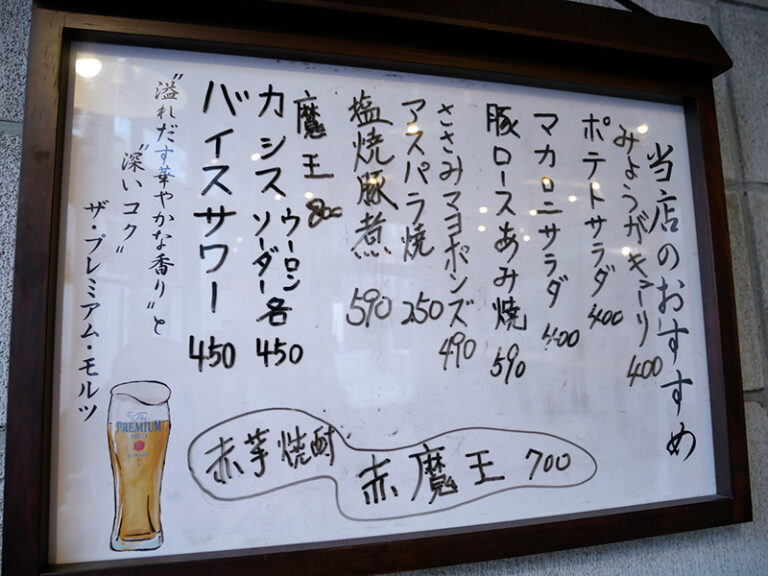 当店のおすすめ
みょうがキューリ 400
ポテトサラダ 400
マカロニサラダ 400
豚ロースあみ焼 590
ささみマヨポンズ 490
アスパラ焼 250
塩焼豚煮 590
魔王 800
カシス ウーロン ソーダー 各 450
バイスサワー 450
"溢れだす華やかな香り"と
"深いコク"
ザ・プレミアム・モルツ
The PREMIUM MALT'S
赤芋焼酎
赤魔王 700